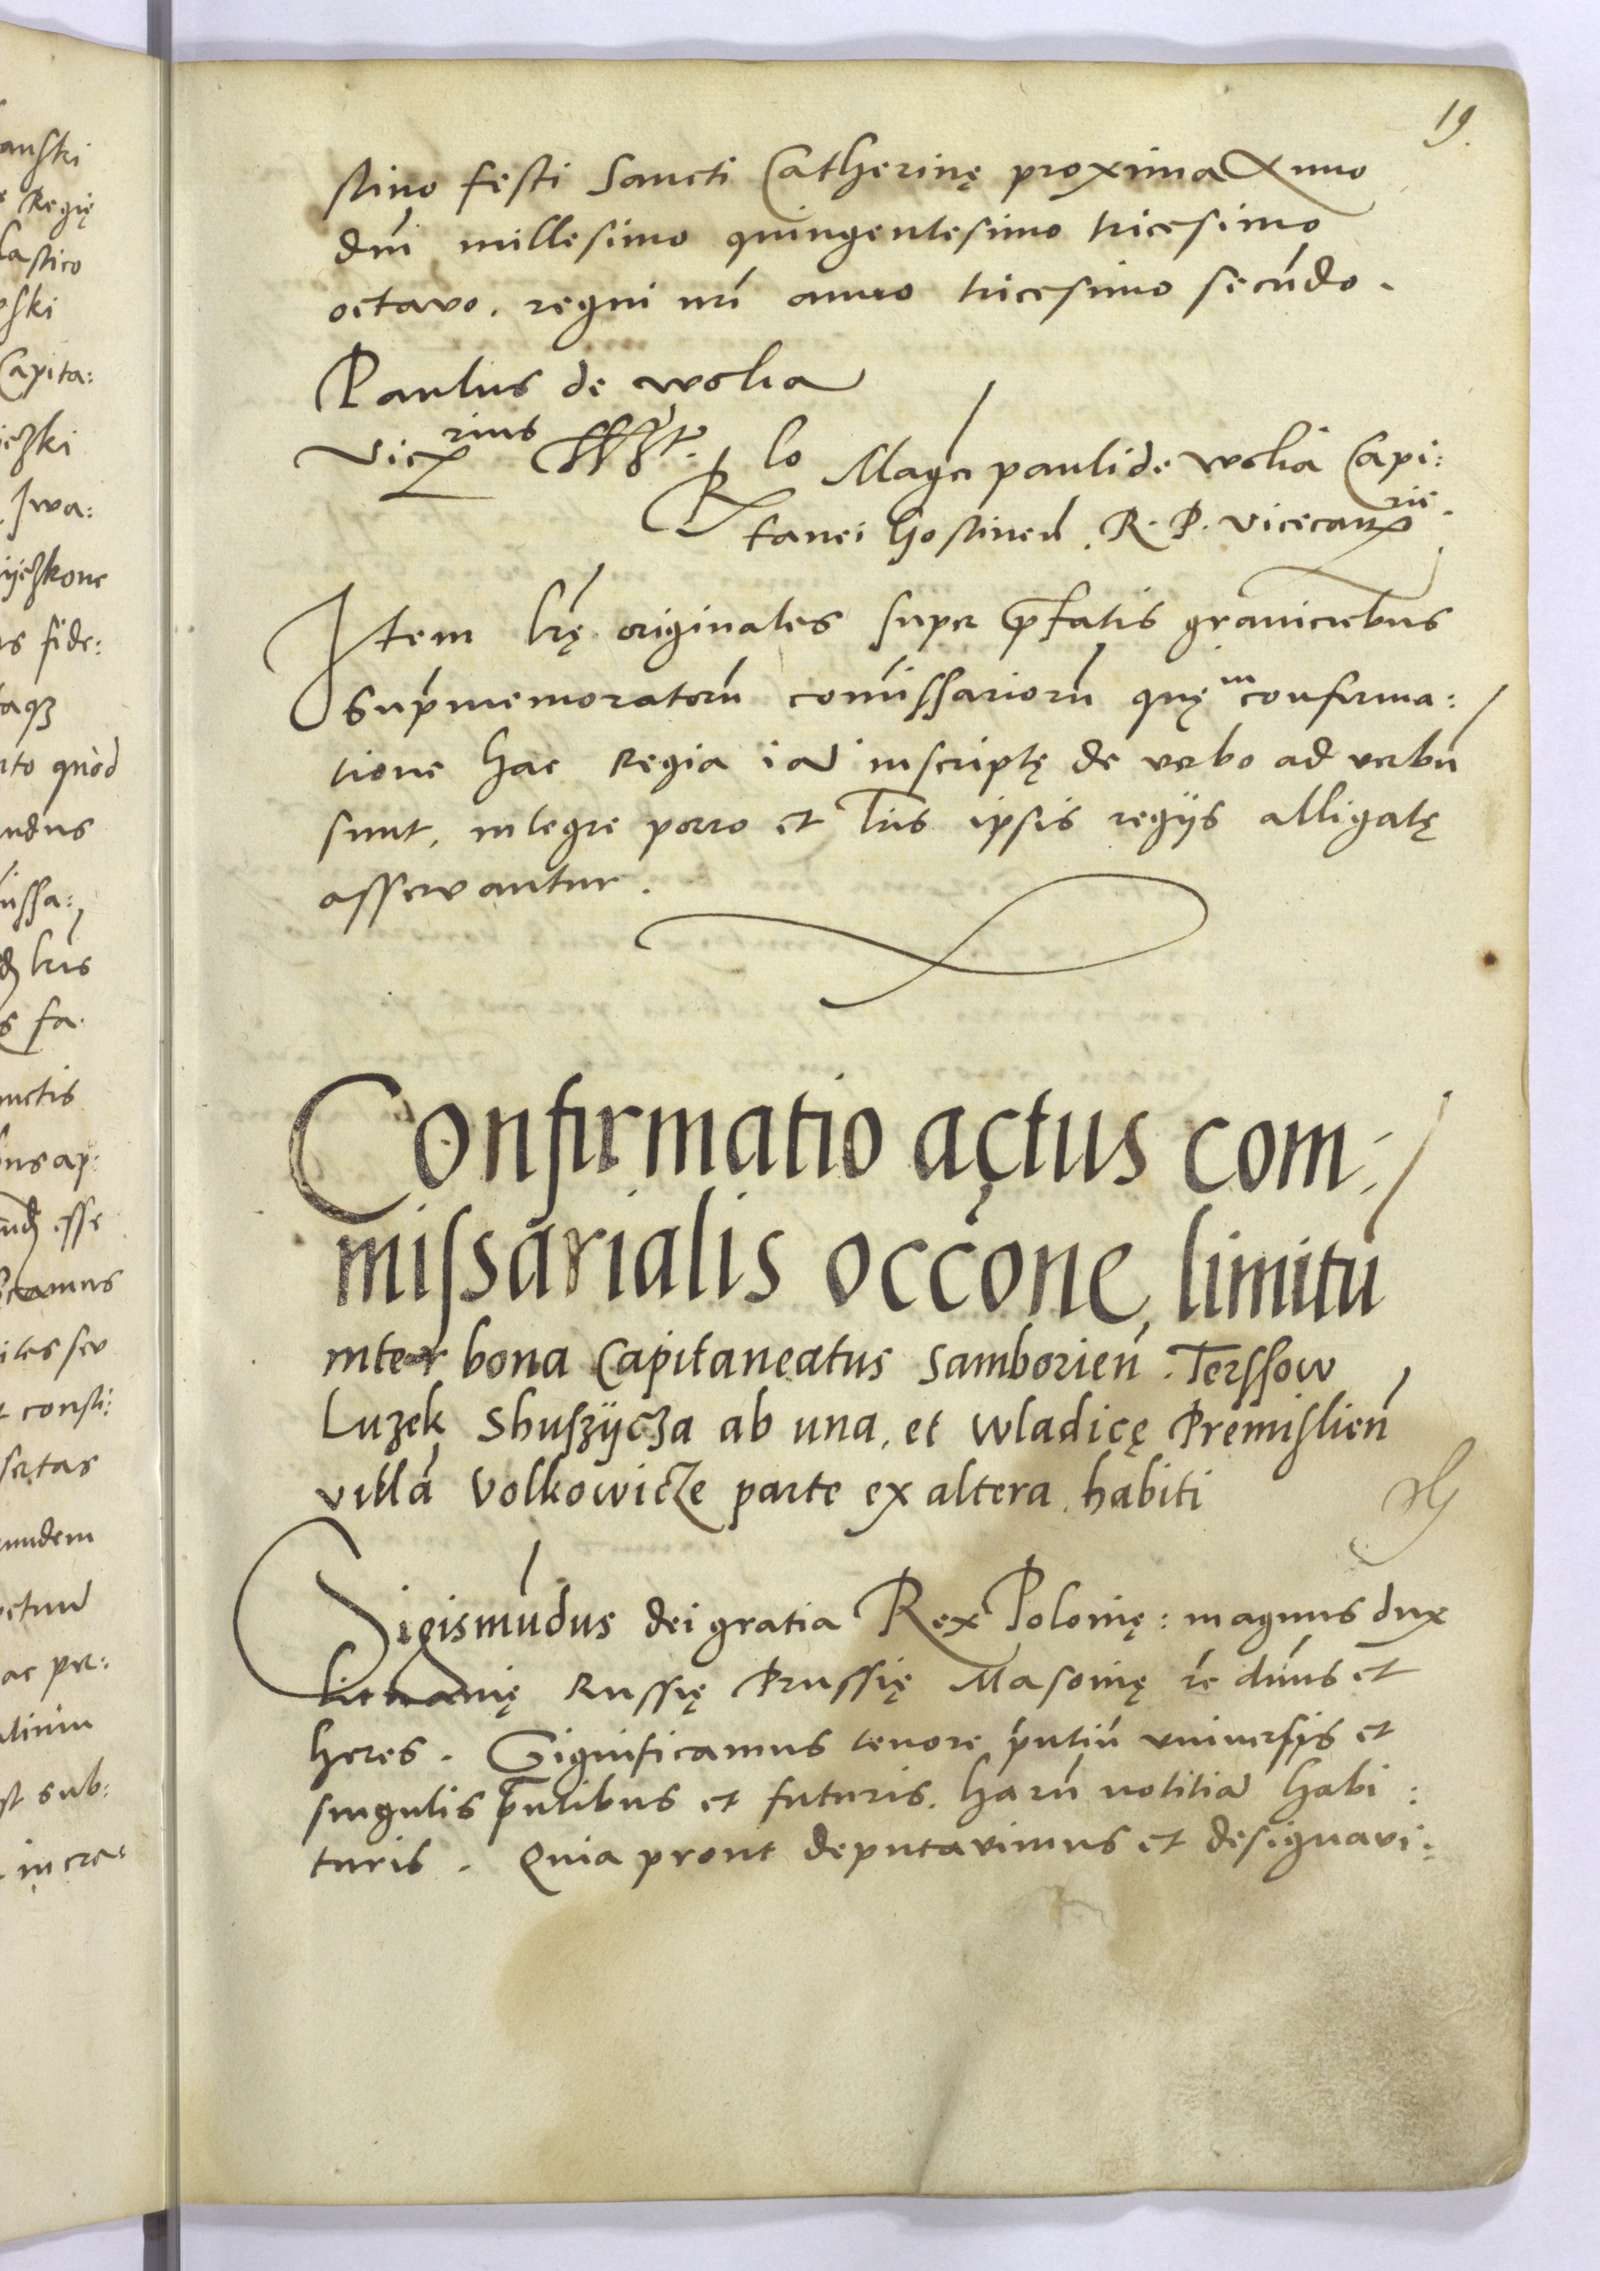 19.
stino festi Sancti Catherinę proxima Anno
dnī millesimo quingentesimo tricesimo
octavo. regni nrī anno tricesimo secundo.
Paulus de wolia
rius
Vic
Rlo Magci pauli de wolia Capi:
tanei Gostinen. R. P. vicecanrii.
Item lrę originales super pfatis graniciebus
Supmemoratorū comissariorū quę in confirma:
tione hac Regia iā inscriptę de verbo ad verbū
sunt, integre porro et lris ipsis regijs alligatę
asservantur.
Confirmatio actus com:
missarialis occone limitū
inter bona Capitaneatus Samborien̄. Terssow
Luzek Shuszÿcza ab una, et wladicę Premislien̄
villā Volkowicze parte ex altera habiti
Sigismūdus dei gratia Rex Polonię: magnus dux
lituanię Russię Prussię Masovię rē dnūs et
heres. Significamus tenore pntiū universis et
singulis pntibus et futuris. harū notitiā habi:
turis. Quia prout deputavimus et designavi:
anski
Regię
lastico
ski
Capita:
iezki
Iwa:
ijezkone
s fide:
taqz
rto quod
undus
issa:
lris
s fa.
nctis
bus ap:
esse
camus
ites seu
t consti:
sertas
undem
petuū
ac per:
st sub:
in cra: